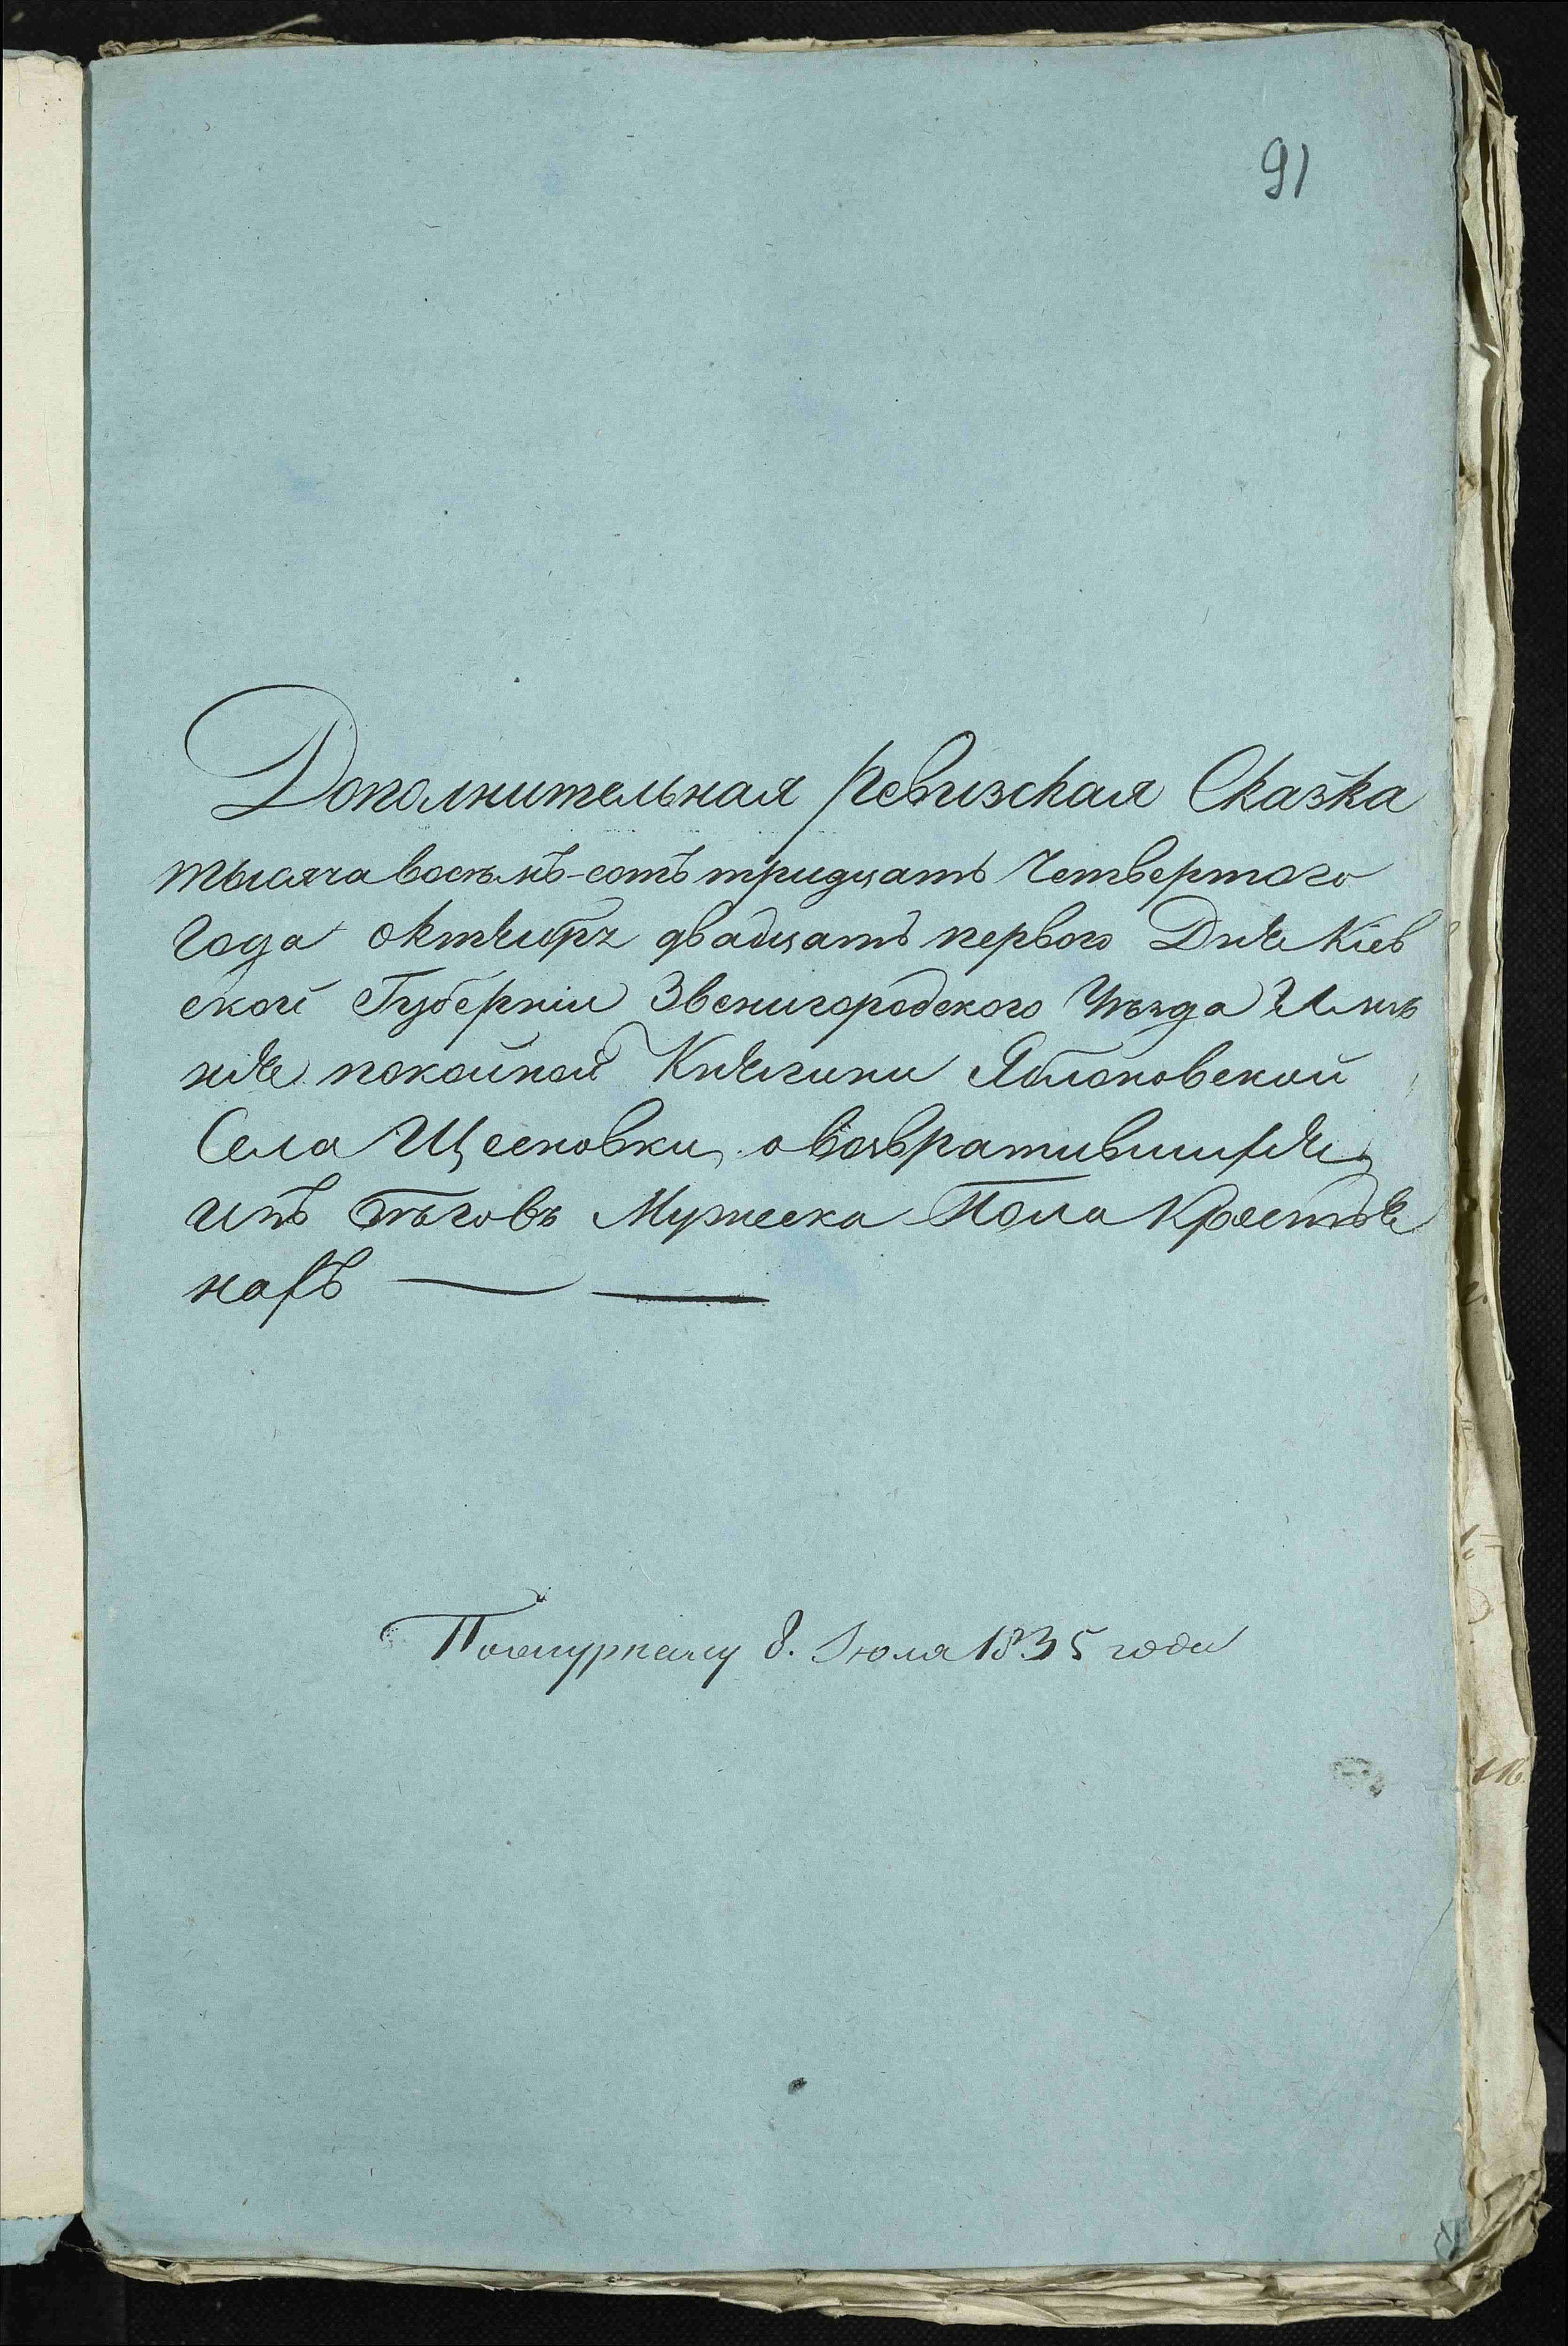 91
Дополнительная Ревизская Сказка
тысяча восѣмъ-сотъ тридцать Четвертого
Года октября двадцать первого Дня Кіев
ской Губерніи Звенигородского Уѣзда Имѣ
нія покойной Княгини Яблоновской
Села Щесновки о возвратившихся
изъ бѣговъ Мужеска Пола Крестья
нахъ
8. Июля 1835 года